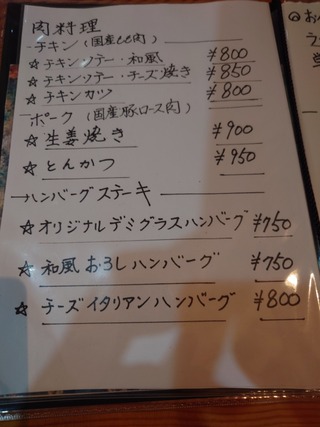 肉料理
チキン (国産もも肉)
☆ チキンソテー・和風 ¥800
☆ チキンソテー・チーズ焼き ¥850
☆ チキンカツ ¥800
ポーク (国産豚ロース肉)
☆ 生姜焼き ¥900
☆ とんかつ ¥950
ハンバーグステーキ
☆ オリジナルデミグラスハンバーグ ¥750
☆ 和風おろしハンバーグ ¥750
☆ チーズイタリアンハンバーグ ¥800